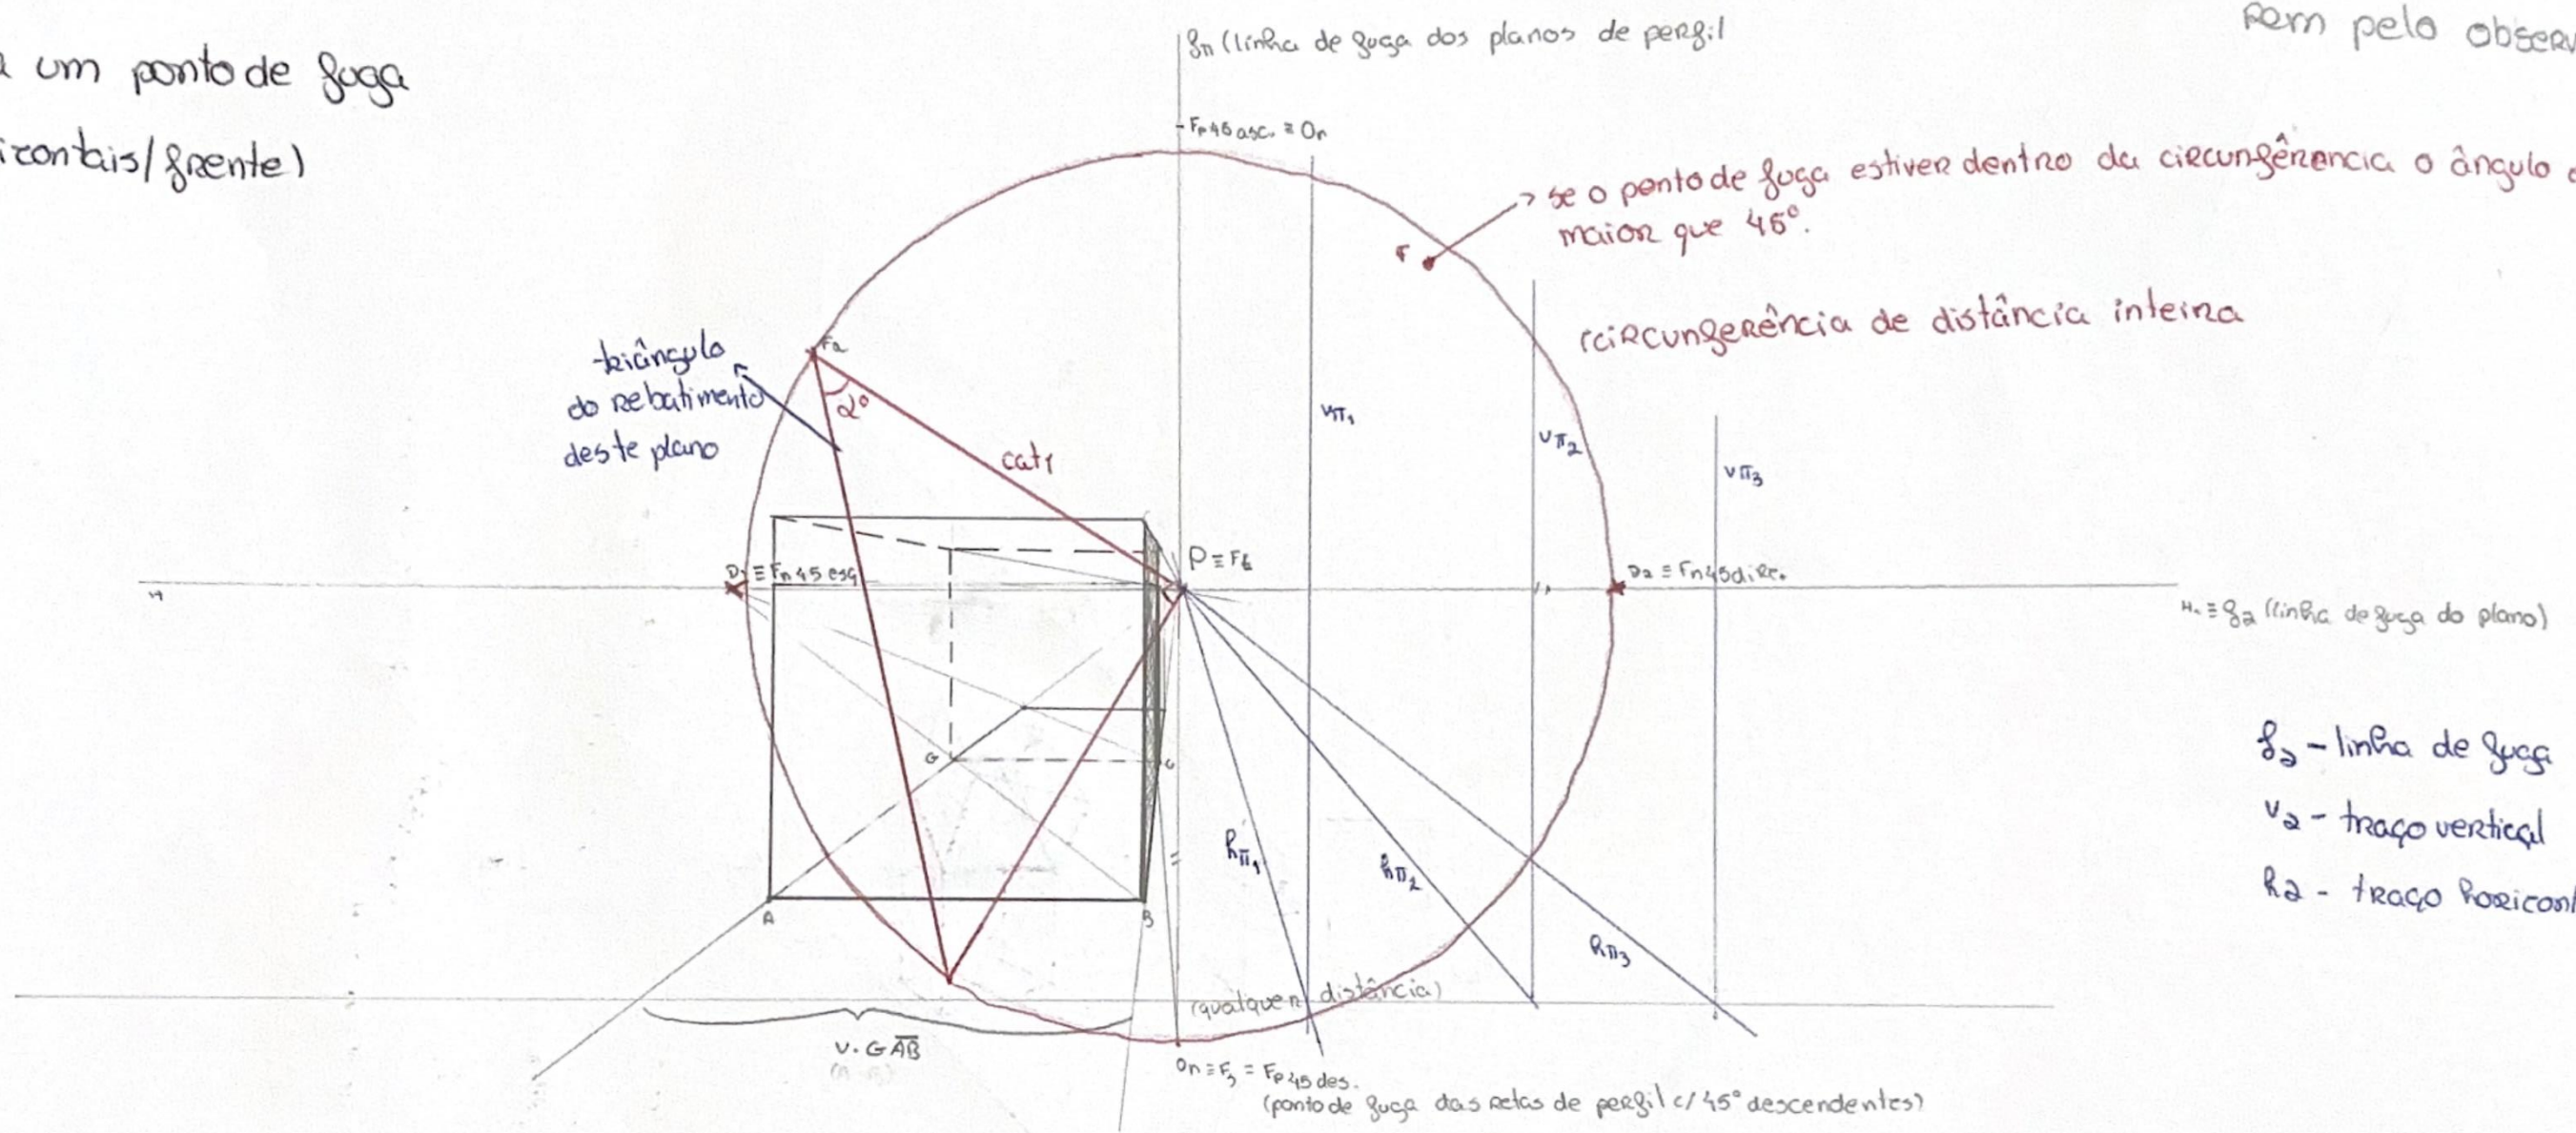 um ponto de fuga
fn (linha de fuga dos planos de perfil
Rem pelo obser
icontais/frente)
Fp 45 asc. ≡ On
→ se o ponto de fuga estiver dentro da circunferencia o ângulo
maior que 45°.
F
(circunferência de distância inteira
triângulo
do rebatimento
deste plano
Fa
α°
cat1
vπ1
vπ2
vπ3
P ≡ Ft
D1 ≡ Fn 45 esq
D2 ≡ Fn45 dire.
H
H. ≡ f2 (linha de fuga do plano)
G
C
f2 - linha de fuga
v2 - traço vertical
h2 - traço horizon
hπ1
hπ2
hπ3
A
B
(qualquer distância)
v.G AB
On ≡ F3 ≡ Fp 45 des.
(ponto de fuga das retas de perfil c/ 45° descendentes)